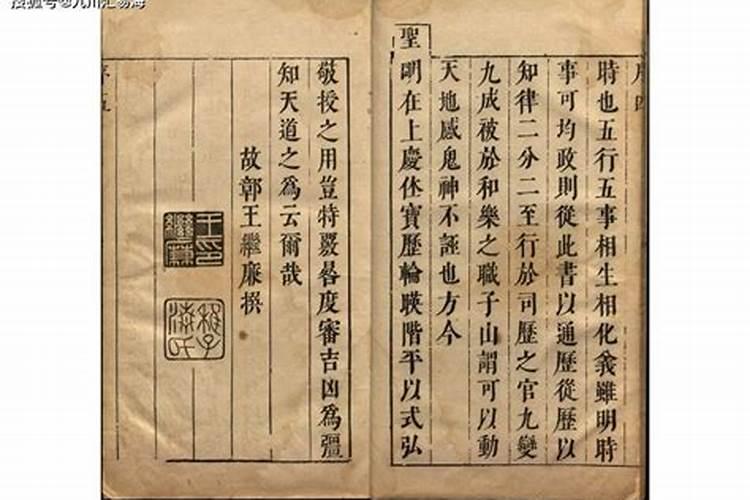 時也五行五事相生相化義雖明時
事可均政則從此書以通歷從歷以
知律二分二至行於司歷之官九變
九成被於和樂之職子山謂可以動
天地感鬼神不誣也方今
聖
明在上慶休寶歷輪暎階平以式弘
敬授之用豈特覈晷度審吉凶爲疆
知天道之爲云爾哉
故鄣王繼廉撰
王印
繼廉